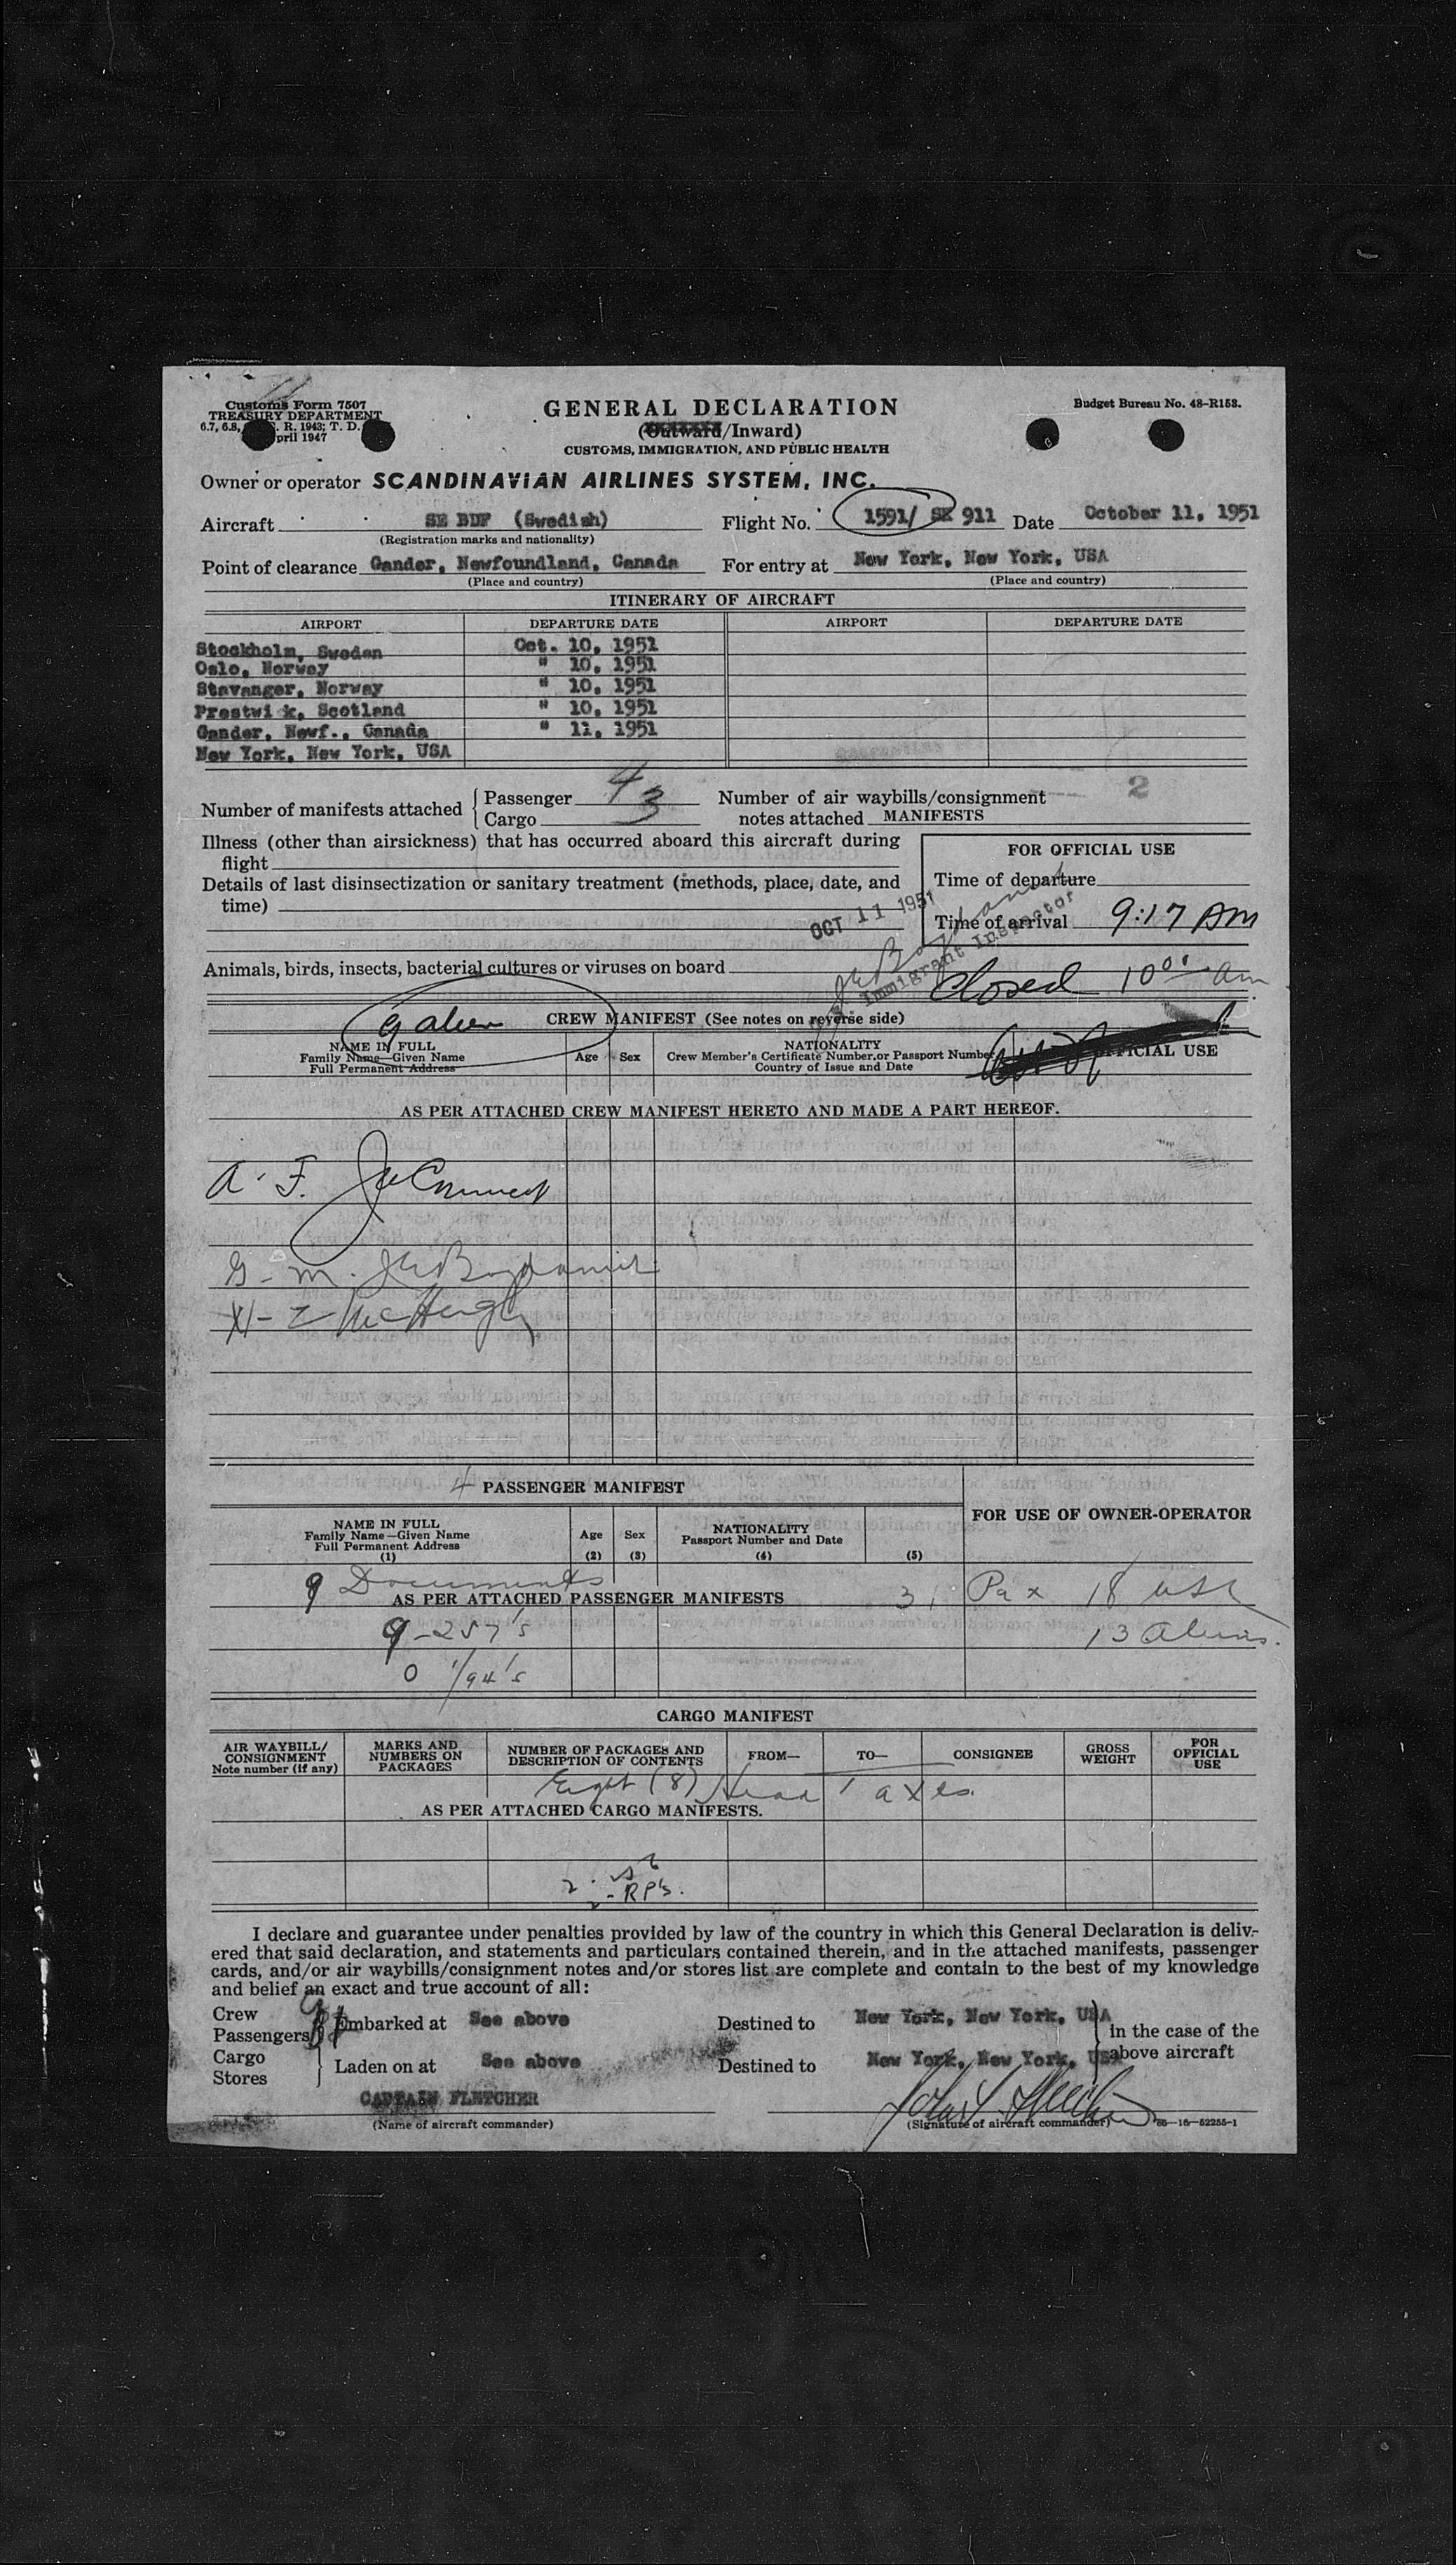 Customs Form 7507
TREASURY DEPARTMENT
6.7, 6.8, R. 1943; T. D.
pril 1947
GENERAL DECLARATION
(Outward/Inward)
CUSTOMS, IMMIGRATION, AND PUBLIC HEALTH
Budget Bureau No. 48-R153.
Owner or operator SCANDINAVIAN AIRLINES SYSTEM, INC.
Aircraft SE BDF (Swedish) Flight No. 1591/ SK 911 Date October 11, 1951
(Registration marks and nationality)
Point of clearance Gander, Newfoundland, Canada For entry at New York, New York, USA
(Place and country) (Place and country)
ITINERARY OF AIRCRAFT
AIRPORT DEPARTURE DATE AIRPORT DEPARTURE DATE
Stockholm, Sweden Oct. 10, 1951
Oslo, Norway " 10, 1951
Stavanger, Norway " 10, 1951
Prestwi k, Scotland " 10, 1951
Gander, Newf., Canada " 11, 1951
New York, New York, USA
2
Number of manifests attached { Passenger 4 Number of air waybills/consignment
Cargo 3 notes attached MANIFESTS
Illness (other than airsickness) that has occurred aboard this aircraft during
flight
FOR OFFICIAL USE
Details of last disinsectization or sanitary treatment (methods, place, date, and
time)
Time of departure
OCT 11 1951
Time of arrival 9:17 AM
Immigrant Inspector
Animals, birds, insects, bacterial cultures or viruses on board
Closed 10 00 am
9 alien
CREW MANIFEST (See notes on reverse side)
NAME IN FULL
Family Name—Given Name
Full Permanent Address
Age Sex
NATIONALITY
Crew Member's Certificate Number or Passport Number
Country of Issue and Date
OFFICIAL USE
AS PER ATTACHED CREW MANIFEST HERETO AND MADE A PART HEREOF.
A. F.
G. M.
McHugh
4 PASSENGER MANIFEST
FOR USE OF OWNER-OPERATOR
NAME IN FULL
Family Name—Given Name
Full Permanent Address
(1)
Age
(2)
Sex
(3)
NATIONALITY
Passport Number and Date
(4)
(5)
9 Documents
AS PER ATTACHED PASSENGER MANIFESTS 31 Pax 18 USC
9-257's 13 Aliens.
0 1/94's
CARGO MANIFEST
AIR WAYBILL/
CONSIGNMENT
Note number (if any)
MARKS AND
NUMBERS ON
PACKAGES
NUMBER OF PACKAGES AND
DESCRIPTION OF CONTENTS
FROM— TO— CONSIGNEE
GROSS
WEIGHT
FOR
OFFICIAL
USE
Eight (8) Head Taxes.
AS PER ATTACHED CARGO MANIFESTS.
2-RP's.
I declare and guarantee under penalties provided by law of the country in which this General Declaration is deliv-
ered that said declaration, and statements and particulars contained therein, and in the attached manifests, passenger
cards, and/or air waybills/consignment notes and/or stores list are complete and contain to the best of my knowledge
and belief an exact and true account of all:
Crew 9
Passengers Embarked at See above Destined to New York, New York, USA
in the case of the
above aircraft
Cargo
Stores } Laden on at See above Destined to New York, New York, USA
CAPTAIN FLETCHER
(Name of aircraft commander) (Signature of aircraft commander) 16—52255-1